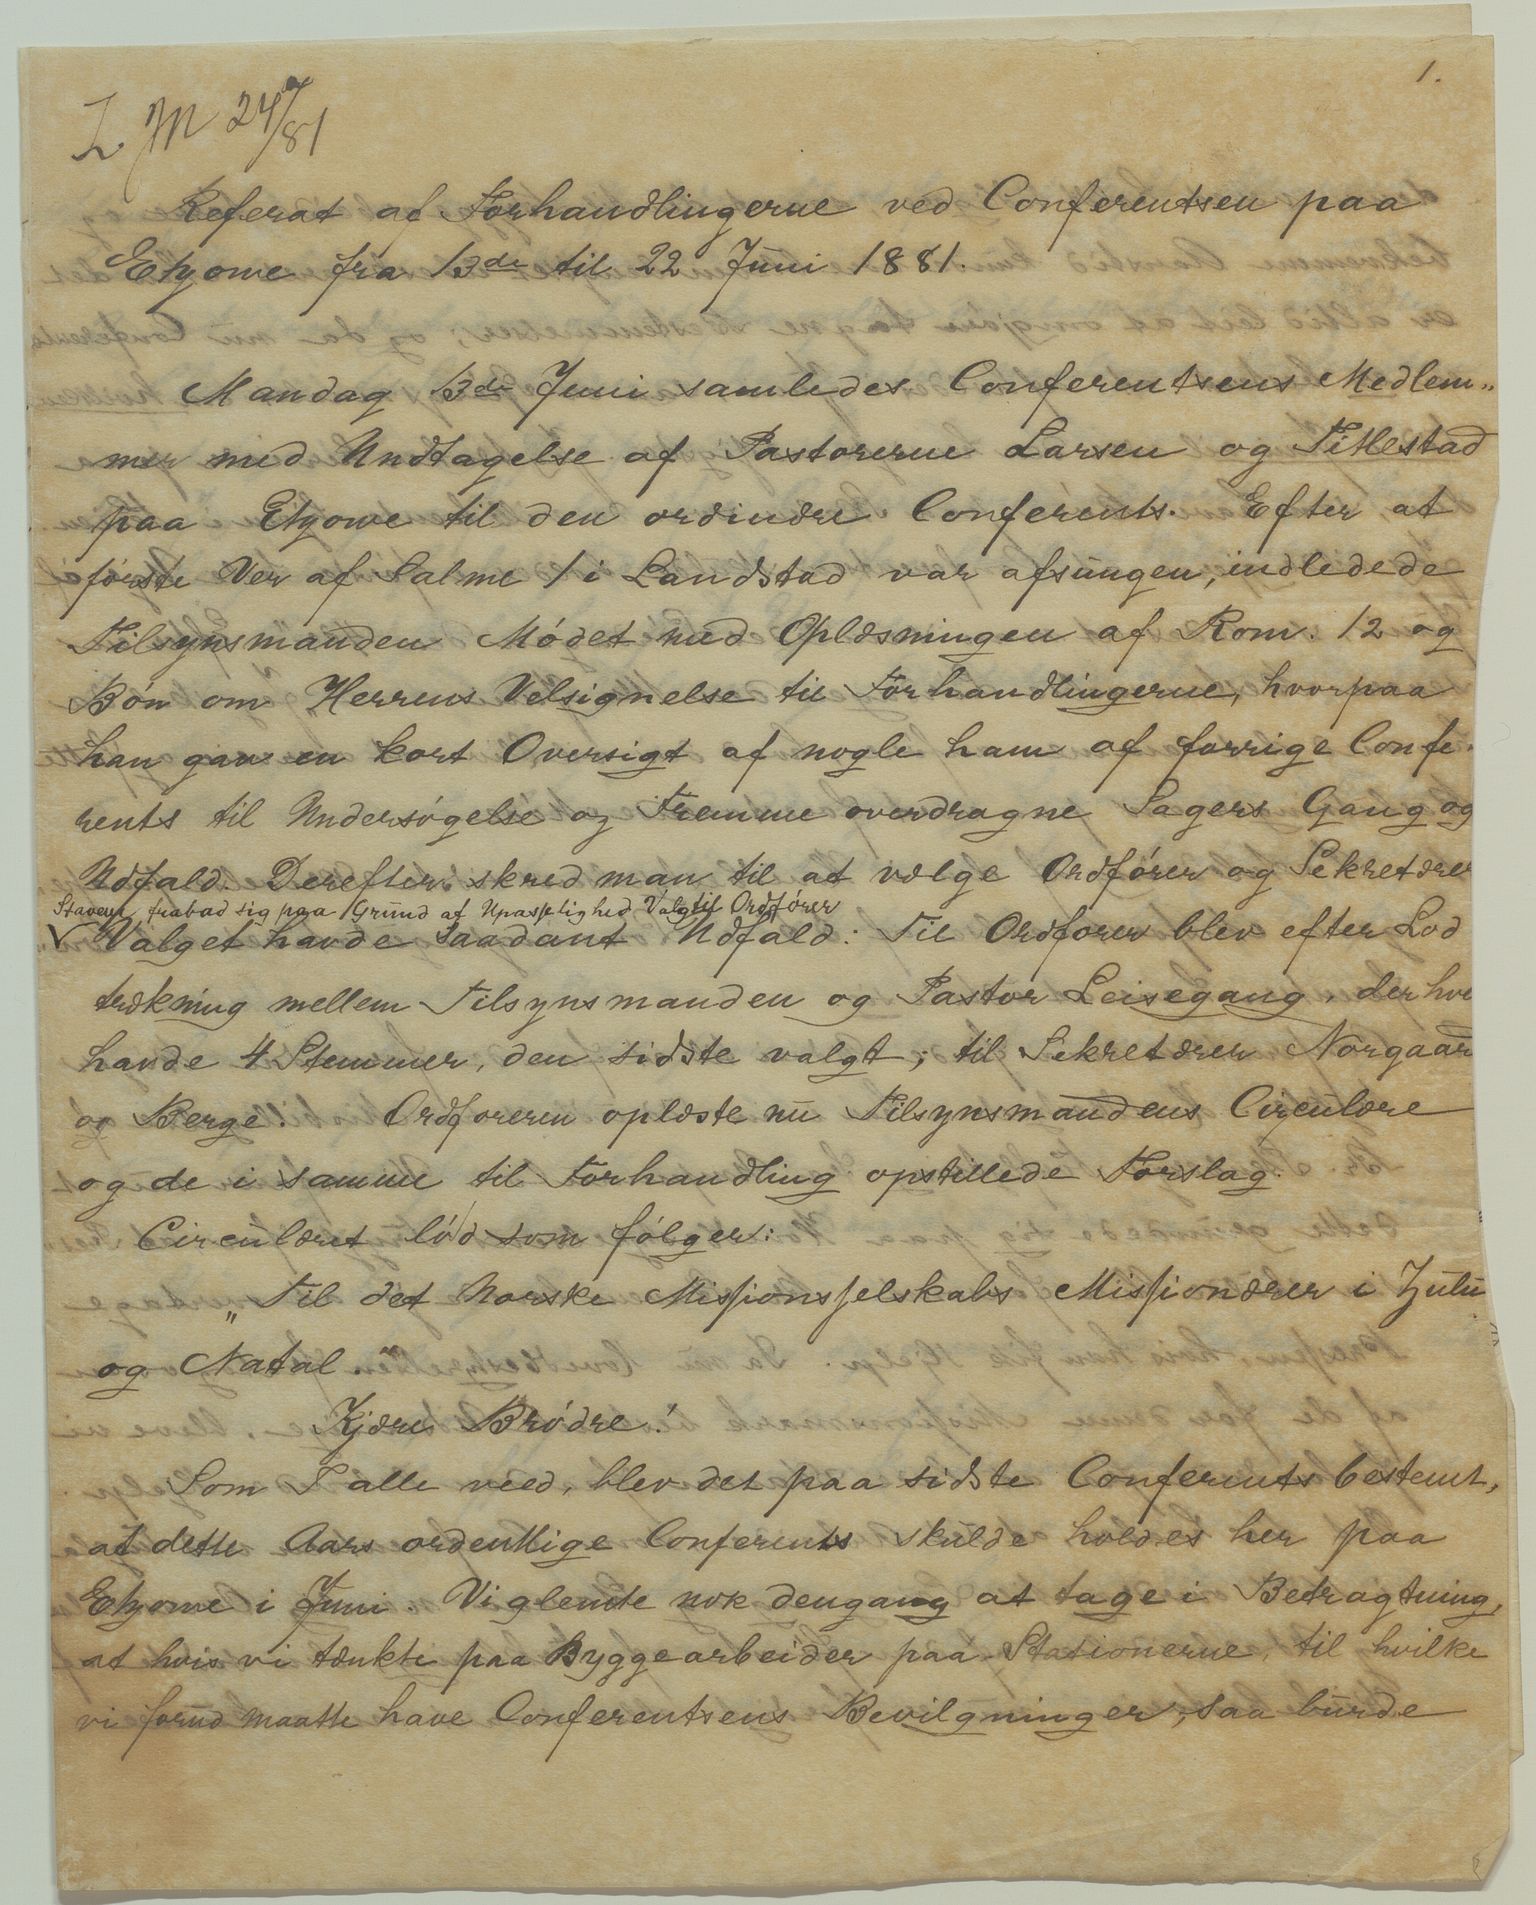 1.
Z. M 24/7 81
Referat af Forhandlingerne ved Conferentsen paa
Ekjowe fra 13de til 22 Juni 1881.
Mandag 13de Juni samledes Conferentsens Medlem„
mer med Undtagelse af Pastorerne Larsen og Titlestad
paa Ekjowe til den ordinære Conferents. Efter at
første Ver af Salme 1 i Landstad var afsungen, indledede
Tilsynsmanden Mødet med Oplæsningen af Rom. 12 og
Bøn om Herrens Velsignelse til Forhandlingerne, hvorpaa
han gav en kort Oversigt af nogle ham af forrige Confe„
rents til Undersøgelse og Fremme overdragne Sagers Gang og
Udfald. Derefter skred man til at vælge Ordfører og Sekretærer
Stavem frabad sig paa Grund af Upasselighed Valg til Ordfører
V Valget havde saadant Udfald: Til Ordfører blev efter Lod
trækning mellem Tilsynsmanden og Pastor Leisegang, der hve
havde 4 Stemmer, den sidste valgt; til Sekretærer Norgaard
og Berge. Ordføreren oplæste nu Tilsynsmandens Circulære
og de i samme til Forhandling opstillede Forslag.
Circulæret lød som følger:
„Til det Norske Missionsselskabs Missionærer i Zulu
og Natal."
Kjære Brødre!
Som I alle veed, blev det paa sidste Conferents bestemt,
at dette Aars ordentlige Conferents skulde holdes her paa
Ekjowe i Juni. Vi glemte nok dengang at tage i Betragtning,
at hvis vi tænkte paa Byggearbeider paa Stationerne, til hvilke
vi forud maatte have Conferentsens Bevilgninger, saa burde